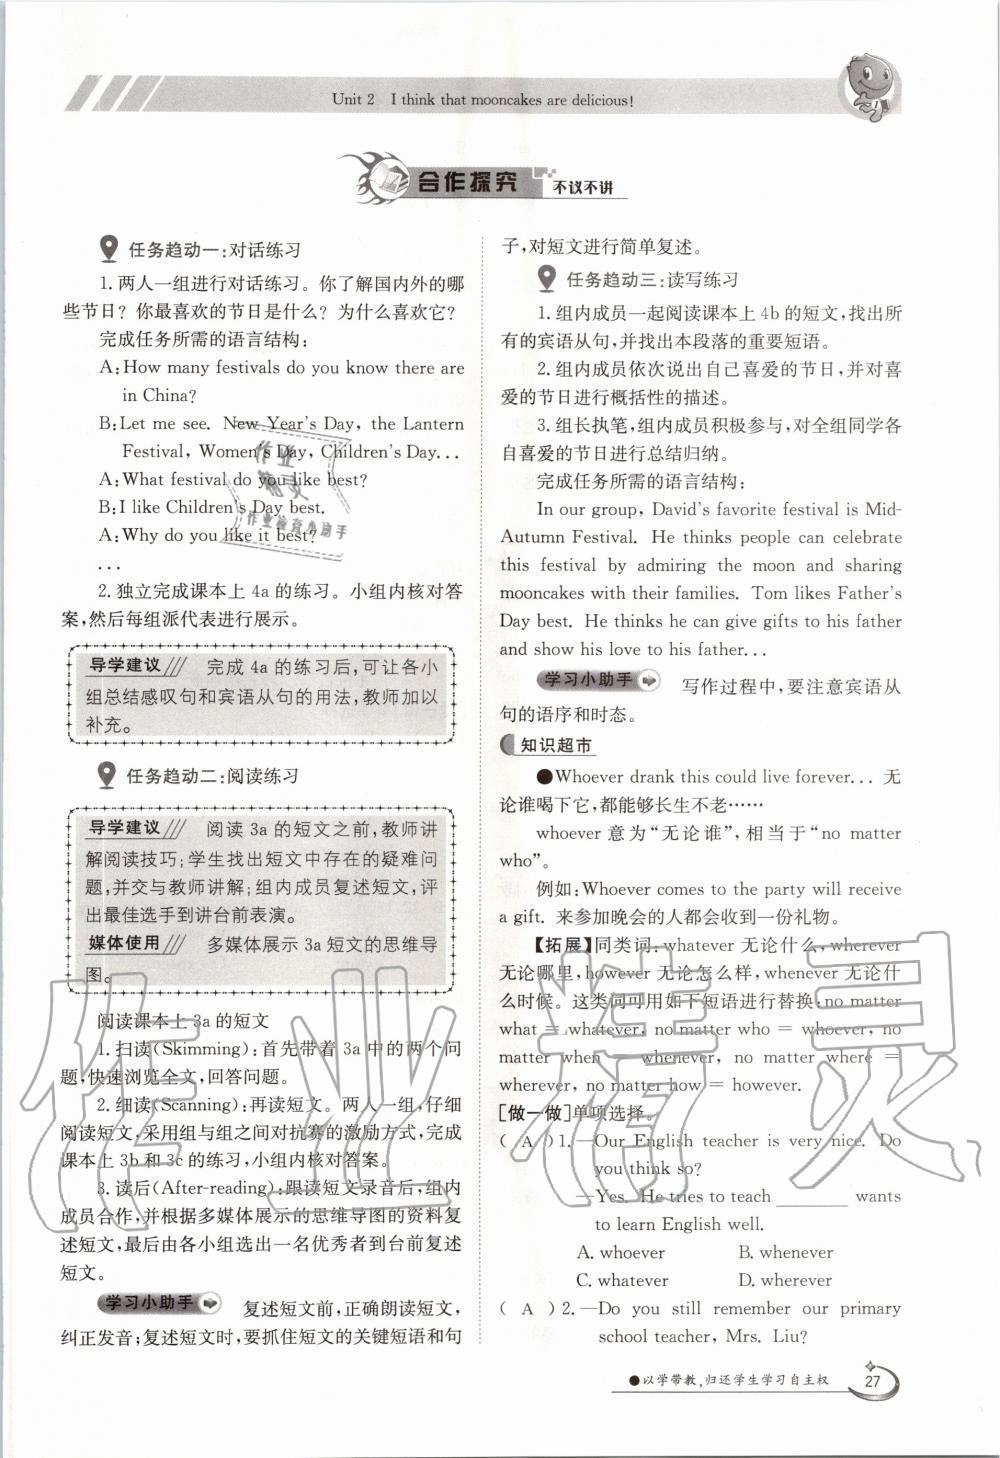 Unit 2 I think that mooncakes are delicious!
合作探究 不议不讲
任务趋动一:对话练习
1.两人一组进行对话练习。你了解国内外的哪
些节日?你最喜欢的节日是什么?为什么喜欢它?
完成任务所需的语言结构:
A:How many festivals do you know there are
in China?
B:Let me see. New Year's Day, the Lantern
Festival, Women's Day, Children's Day...
A:What festival do you like best?
B:I like Children's Day best.
A:Why do you like it best?
...
2.独立完成课本上 4a 的练习。小组内核对答
案,然后每组派代表进行展示。
导学建议 完成 4a 的练习后,可让各小
组总结感叹句和宾语从句的用法,教师加以
补充。
任务趋动二:阅读练习
导学建议 阅读 3a 的短文之前,教师讲
解阅读技巧;学生找出短文中存在的疑难问
题,并交与教师讲解;组内成员复述短文,评
出最佳选手到讲台前表演。
媒体使用 多媒体展示 3a 短文的思维导
图。
阅读课本上 3a 的短文
1.扫读(Skimming):首先带着 3a 中的两个问
题,快速浏览全文,回答问题。
2.细读(Scanning):再读短文。两人一组,仔细
阅读短文,采用组与组之间对抗赛的激励方式,完成
课本上 3b 和 3c 的练习,小组内核对答案。
3.读后(After-reading):跟读短文录音后,组内
成员合作,并根据多媒体展示的思维导图的资料复
述短文,最后由各小组选出一名优秀者到台前复述
短文。
学习小助手 复述短文前,正确朗读短文,
纠正发音;复述短文时,要抓住短文的关键短语和句
子,对短文进行简单复述。
任务趋动三:读写练习
1.组内成员一起阅读课本上 4b 的短文,找出所
有的宾语从句,并找出本段落的重要短语。
2.组内成员依次说出自己喜爱的节日,并对喜
爱的节日进行概括性的描述。
3.组长执笔,组内成员积极参与,对全组同学各
自喜爱的节日进行总结归纳。
完成任务所需的语言结构:
In our group, David's favorite festival is Mid-
Autumn Festival. He thinks people can celebrate
this festival by admiring the moon and sharing
mooncakes with their families. Tom likes Father's
Day best. He thinks he can give gifts to his father
and show his love to his father...
学习小助手 写作过程中,要注意宾语从
句的语序和时态。
知识超市
●Whoever drank this could live forever... 无
论谁喝下它,都能够长生不老……
whoever 意为“无论谁”,相当于“no matter
who”。
例如:Whoever comes to the party will receive
a gift. 来参加晚会的人都会收到一份礼物。
【拓展】同类词:whatever 无论什么,wherever
无论哪里,however 无论怎么样,whenever 无论什
么时候。这类词可用如下短语进行替换:no matter
what = whatever, no matter who = whoever, no
matter when = whenever, no matter where =
wherever, no matter how = however.
[做一做]单项选择。
( A )1.—Our English teacher is very nice. Do
you think so?
—Yes. He tries to teach ________ wants
to learn English well.
A. whoever B. whenever
C. whatever D. wherever
( A )2.—Do you still remember our primary
school teacher, Mrs. Liu?
●以学带教,归还学生学习自主权 27
作业精灵
作业
精灵
作业检查小助手